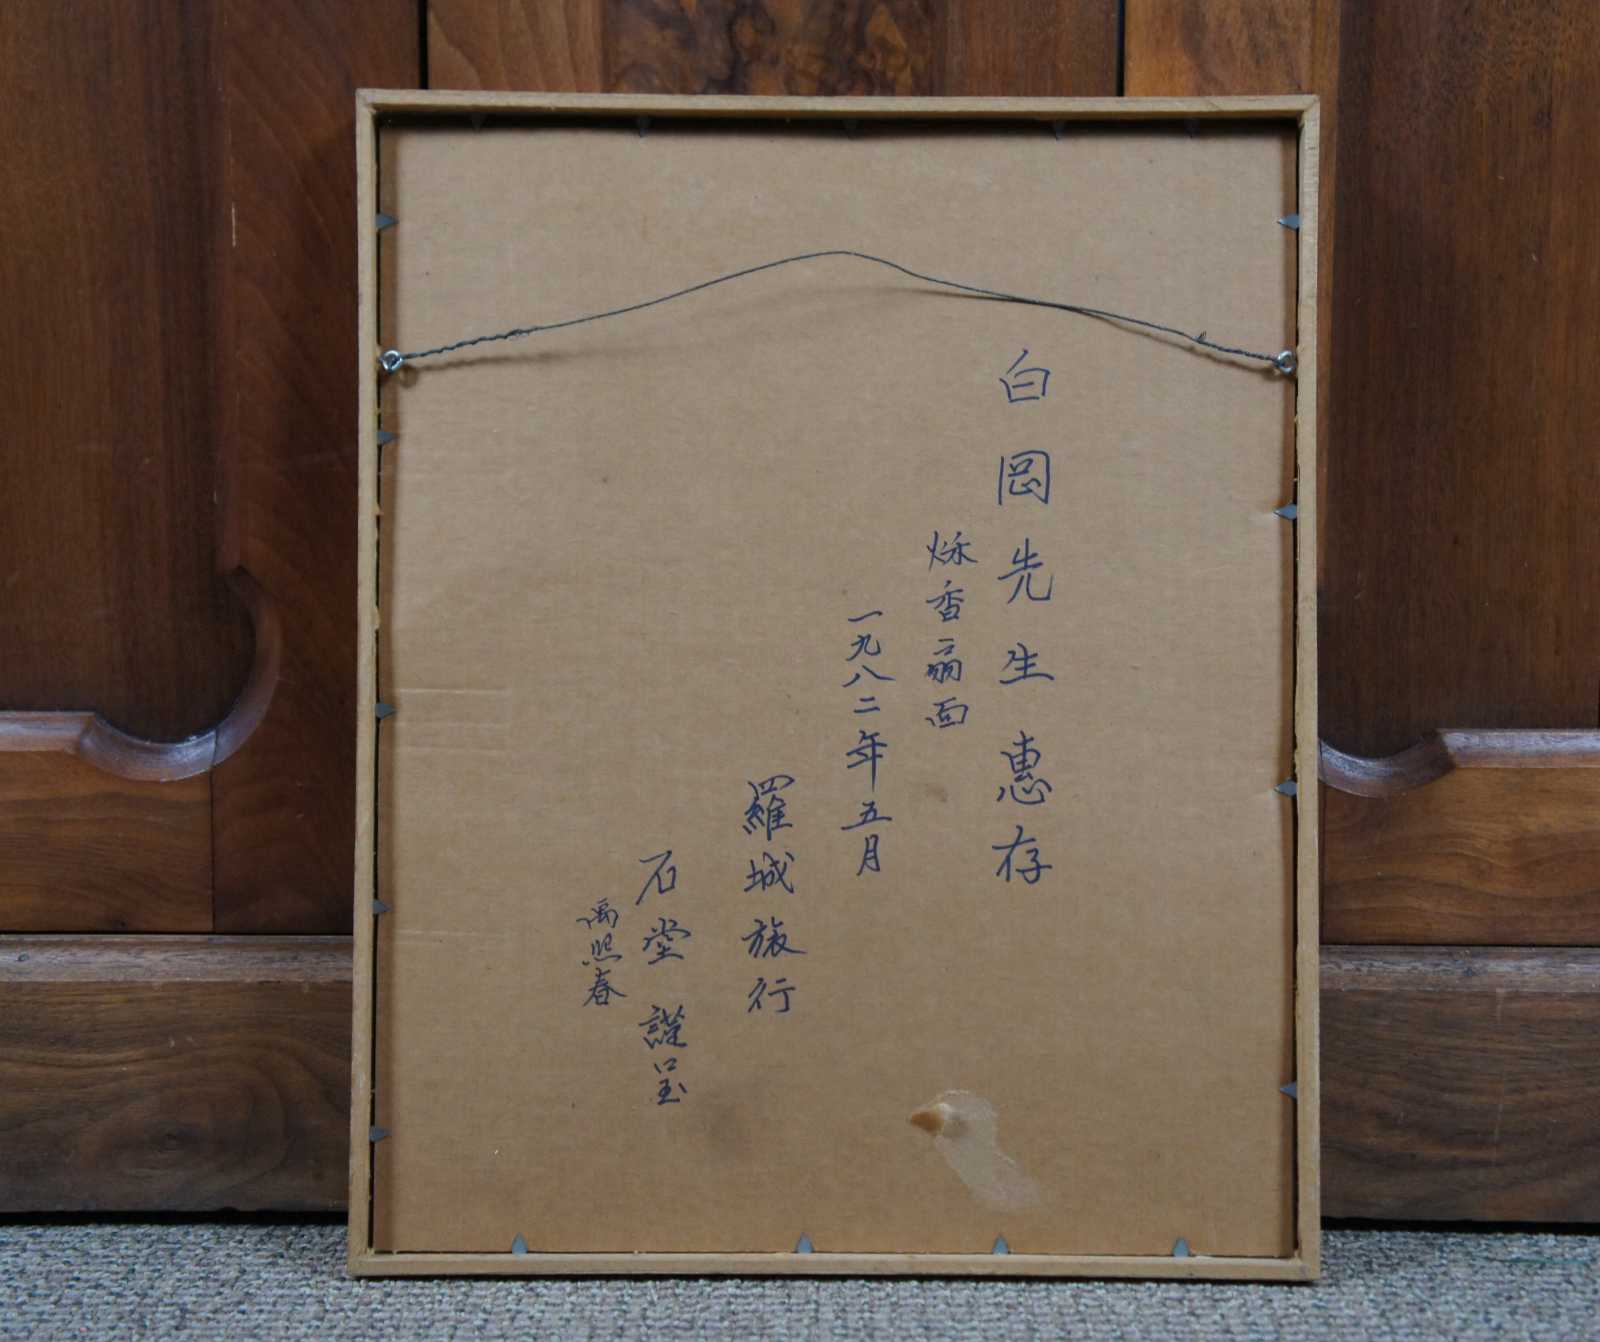 白岡先生惠存
秌香扇面
一九八二年五月
羅城旅行
石堂 謹呈
禹照春